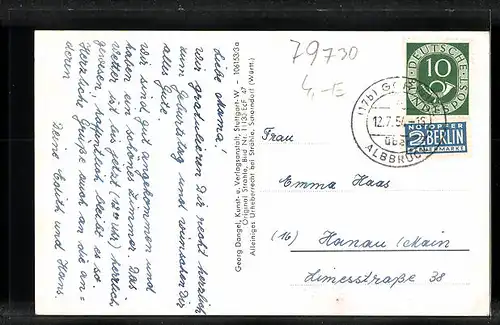 Liebe Mama!
Wir gratulieren Dir recht herzlich
zum Geburtstag und wünschen Dir
alles Gute.
Wir sind gut angekommen und
haben ein schönes Zimmer. Das
Wetter ist bis jetzt (12 Uhr) herrlich
gewesen, hoffentlich bleibt es so.
Herzliche Grüße auch an die an-
deren
Deine Edith und Hans.
Georg Dangel, Kunst- u. Verlagsanstalt, Stuttgart-W
Original Strähle, Bild Nr. 11130 EcF 47
Alleiniges Urheberrecht bei Strähle, Schorndorf (Württ.)
79730
4,-E
DEUTSCHE
10
BUNDESPOST
(17b)
12.7.5
über
ALBBRUCK
NOTOPFER
2 BERLIN
STEUERMARKE
Frau
Emma Haas
(16) Hanau/Main
Limesstraße 38